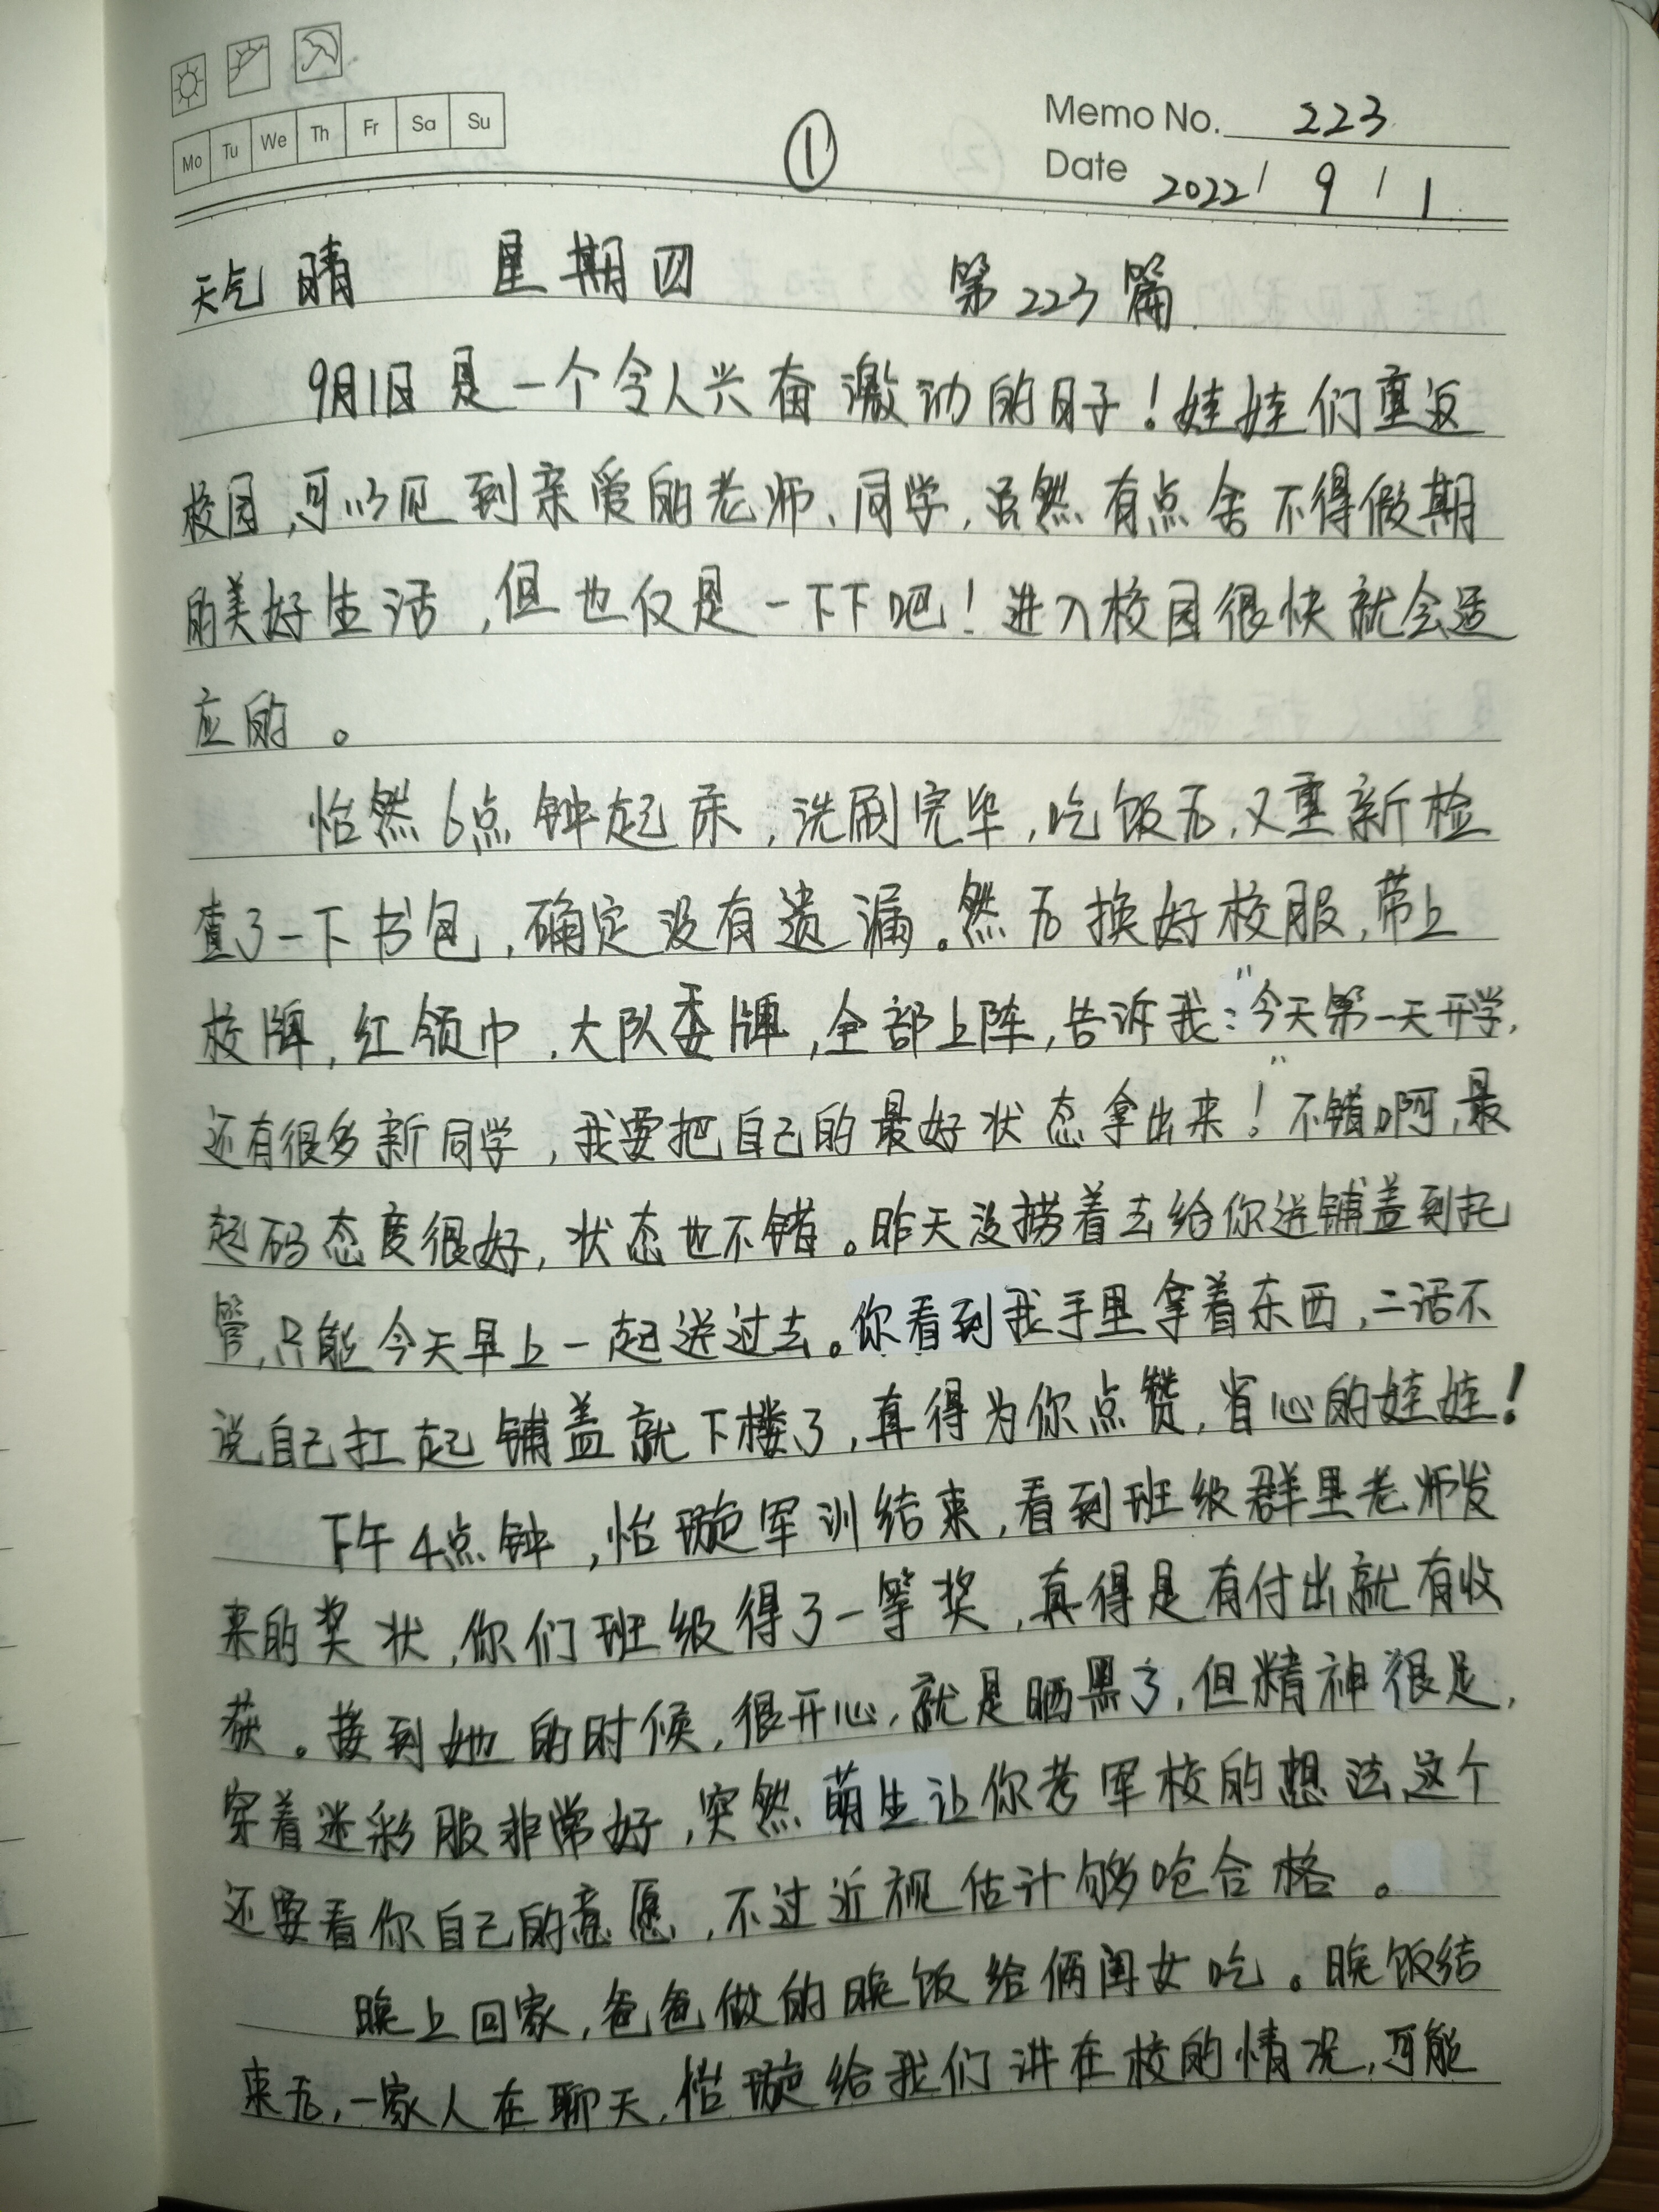 Memo No. 223
Mo Tu We Th Fr Sa Su
①
Date 2022 / 9 / 1
天气 晴 星期四 第223篇
9月1日是一个令人兴奋激动的日子！娃娃们重返
校园，可以见到亲爱的老师、同学，虽然有点舍不得假期
的美好生活，但也仅是一下下吧！进入校园很快就会适
应的。
怡然6点钟起床，洗刷完毕，吃饭后，又重新检
查了一下书包，确定没有遗漏。然后换好校服，带上
校牌，红领巾，大队委牌，全部上阵，告诉我："今天第一天开学，
还有很多新同学，我要把自己的最好状态拿出来！"不错啊，最
起码态度很好，状态也不错。昨天没捞着去给你送铺盖到托
管，只能今天早上一起送过去。你看到我手里拿着东西，二话不
说自己扛起铺盖就下楼了，真得为你点赞，省心的娃娃！
下午4点钟，怡璇军训结束，看到班级群里老师发
来的奖状，你们班级得了一等奖，真得是有付出就有收
获。接到她的时候，很开心，就是晒黑了，但精神很足，
穿着迷彩服非常好，突然萌生让你考军校的想法，这个
还要看你自己的意愿，不过近视估计够呛合格。
晚上回家，爸爸做的晚饭给俩闺女吃。晚饭结
束后，一家人在聊天，怡璇给我们讲在校的情况，可能